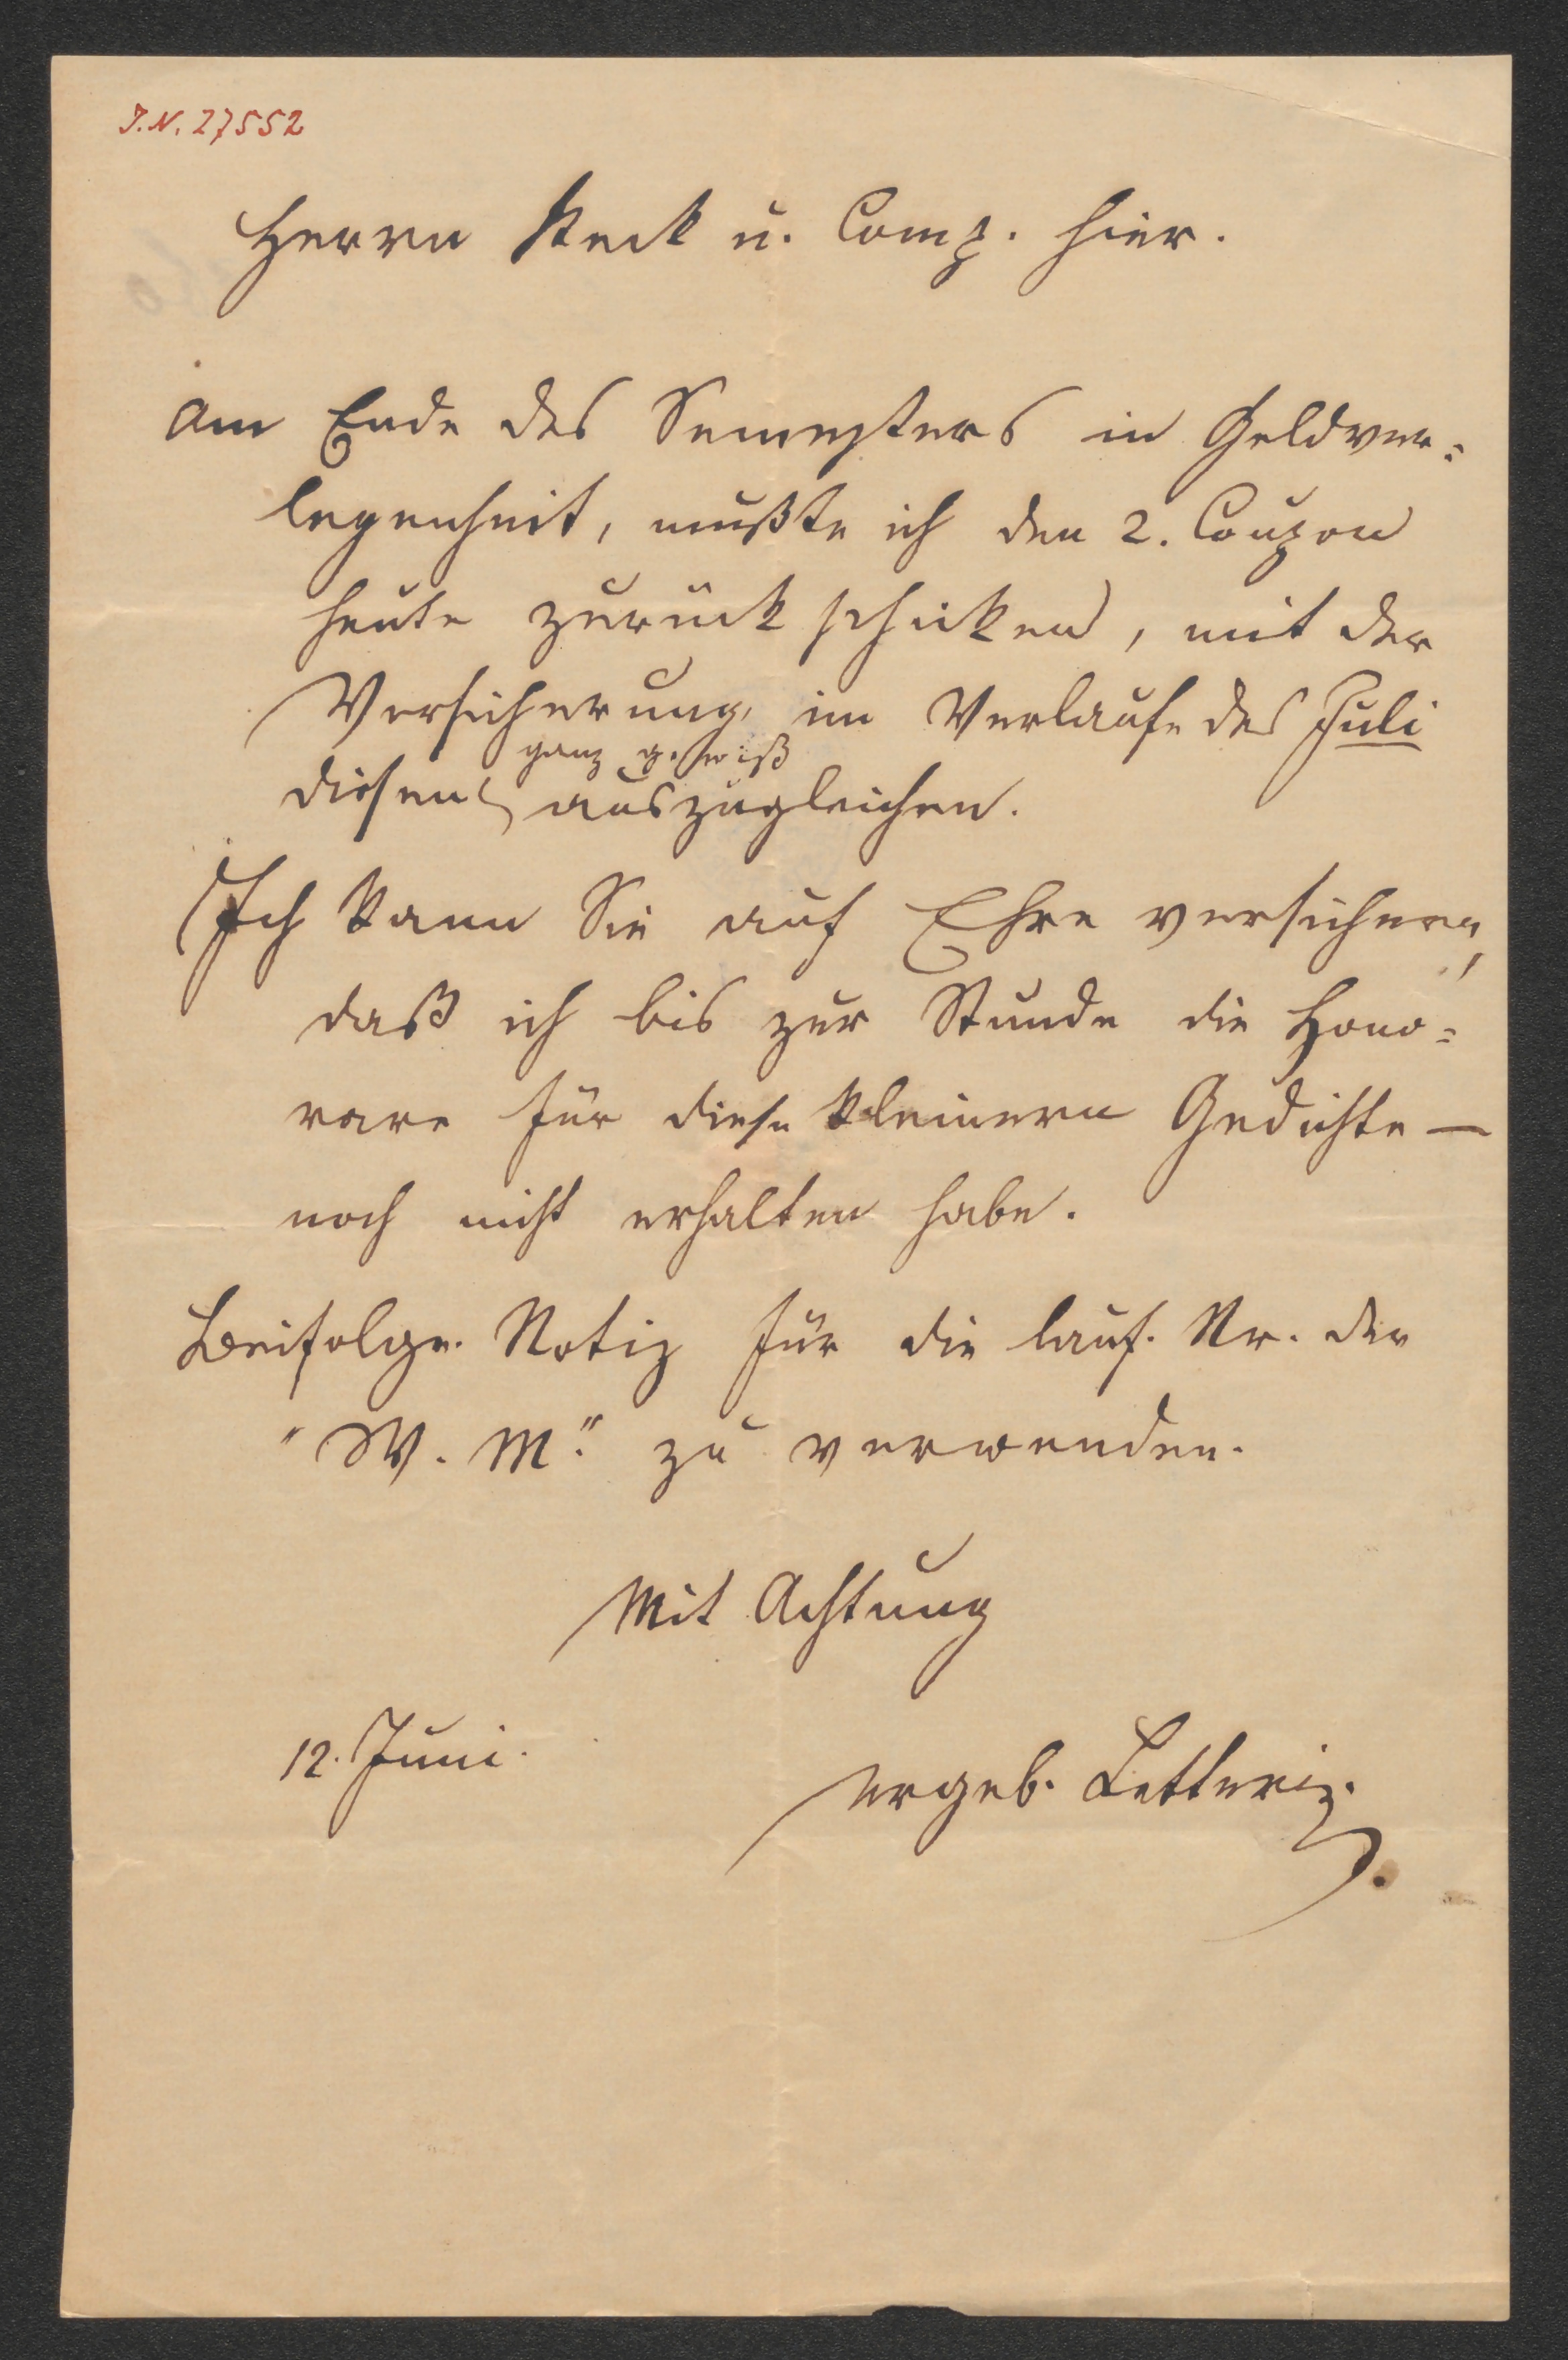 I.N. 27552
Herrn Steck u. Comp. hier.
Am Ende des Semesters in Geldver=
legenheit, mußte ich den 2. Coupon
heute zurück schicken, mit der
Versicherung, im Verlaufe des Juli
ganz gewiß
diesen auszugleichen.
Ich kann Sie auf Ehre versichern,
daß ich bis zur Stunde die Hono=
rare für diese kleinern Gedichte —
noch nicht erhalten habe.
Beifolge. Notiz für die lauf. Nr. der
"W. M." zu verwenden.
Mit Achtung
12. Juni.
ergeb. Letteris.